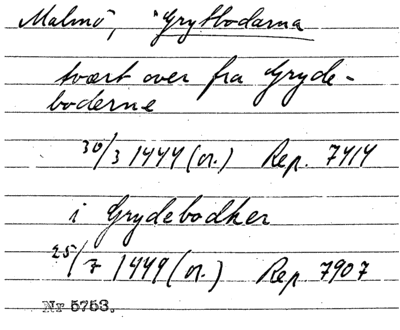 Malmö, *Grytbodarna
tvært over fra Gryde-
boderne
30/3 1444 (or.) Rep. 7414
i Grydebodher
25/7 1449 (or.) Rep 7907
Nr 5753.